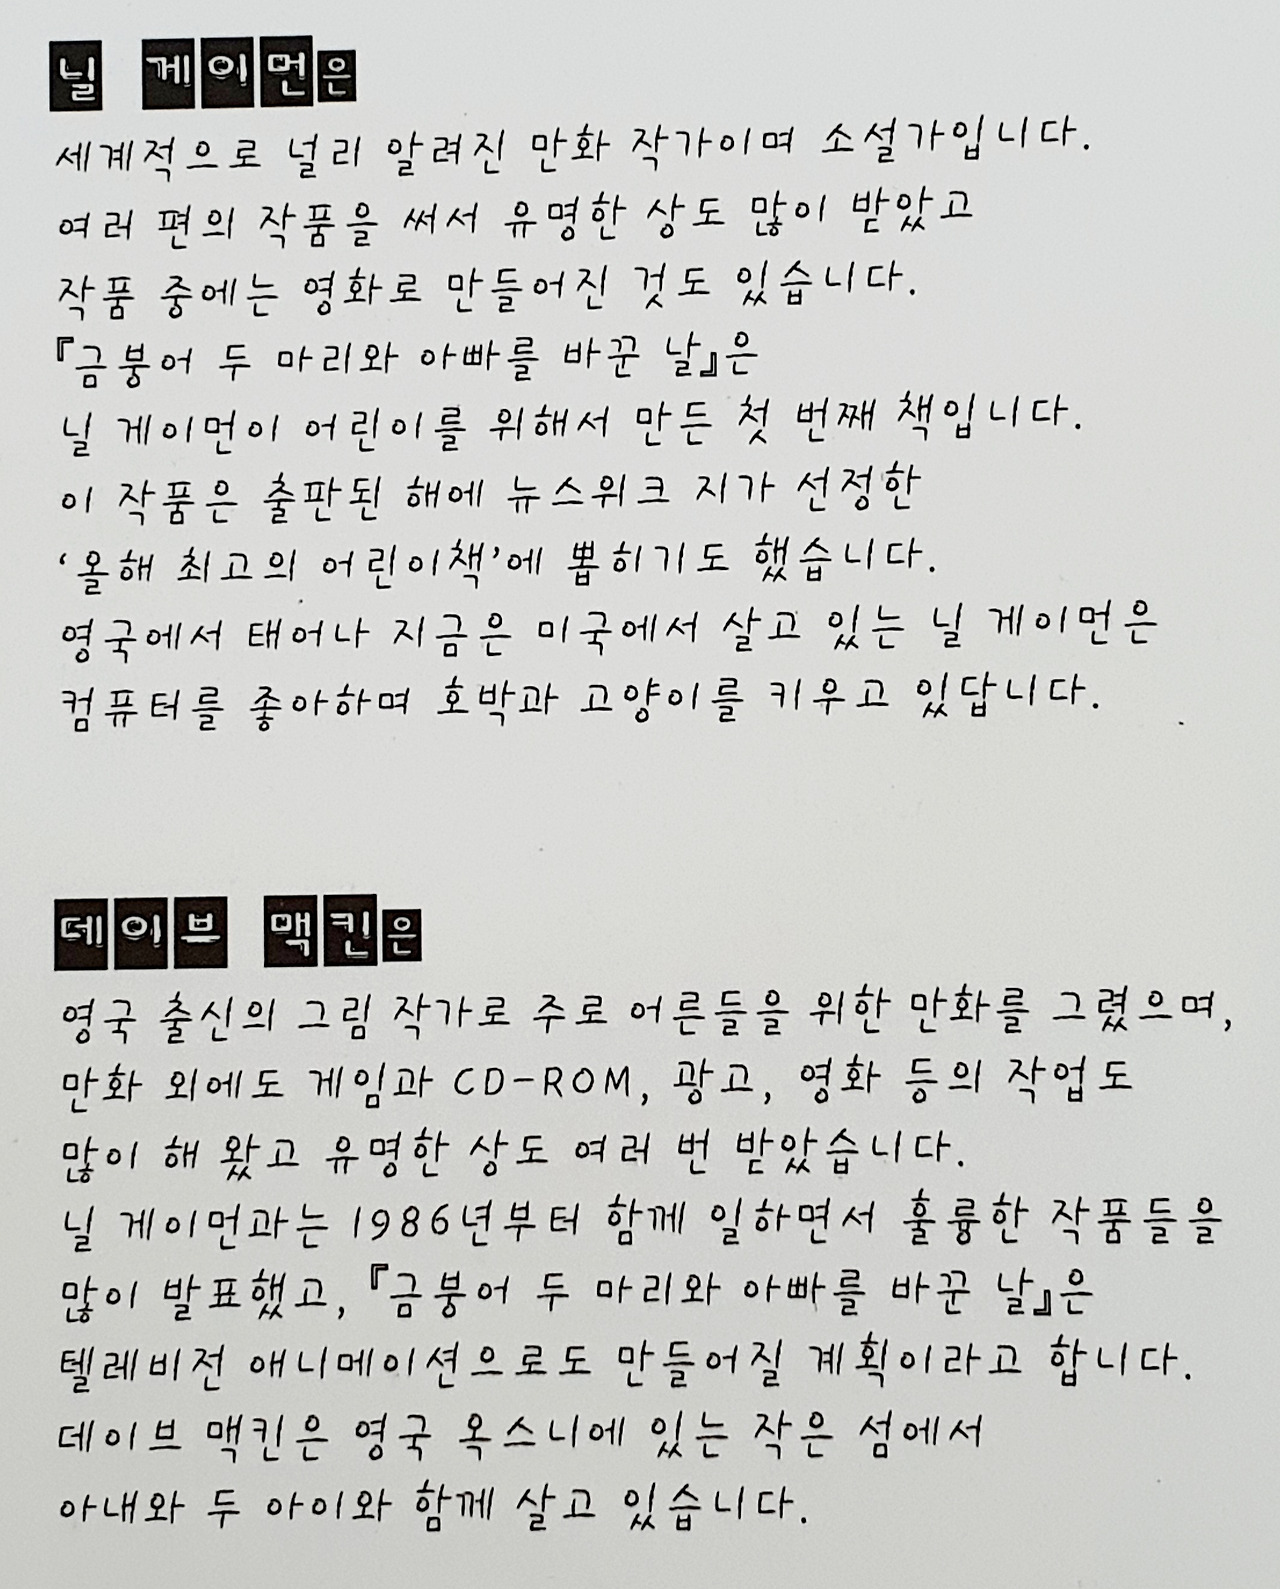 닐 게이먼은
세계적으로 널리 알려진 만화 작가이며 소설가입니다.
여러 편의 작품을 써서 유명한 상도 많이 받았고
작품 중에는 영화로 만들어진 것도 있습니다.
『금붕어 두 마리와 아빠를 바꾼 날』은
닐 게이먼이 어린이를 위해서 만든 첫 번째 책입니다.
이 작품은 출판된 해에 뉴스위크 지가 선정한
‘올해 최고의 어린이책’에 뽑히기도 했습니다.
영국에서 태어나 지금은 미국에서 살고 있는 닐 게이먼은
컴퓨터를 좋아하며 호박과 고양이를 키우고 있답니다.
데이브 맥킨은
영국 출신의 그림 작가로 주로 어른들을 위한 만화를 그렸으며,
만화 외에도 게임과 CD-ROM, 광고, 영화 등의 작업도
많이 해 왔고 유명한 상도 여러 번 받았습니다.
닐 게이먼과는 1986년부터 함께 일하면서 훌륭한 작품들을
많이 발표했고, 『금붕어 두 마리와 아빠를 바꾼 날』은
텔레비전 애니메이션으로도 만들어질 계획이라고 합니다.
데이브 맥킨은 영국 옥스니에 있는 작은 섬에서
아내와 두 아이와 함께 살고 있습니다.